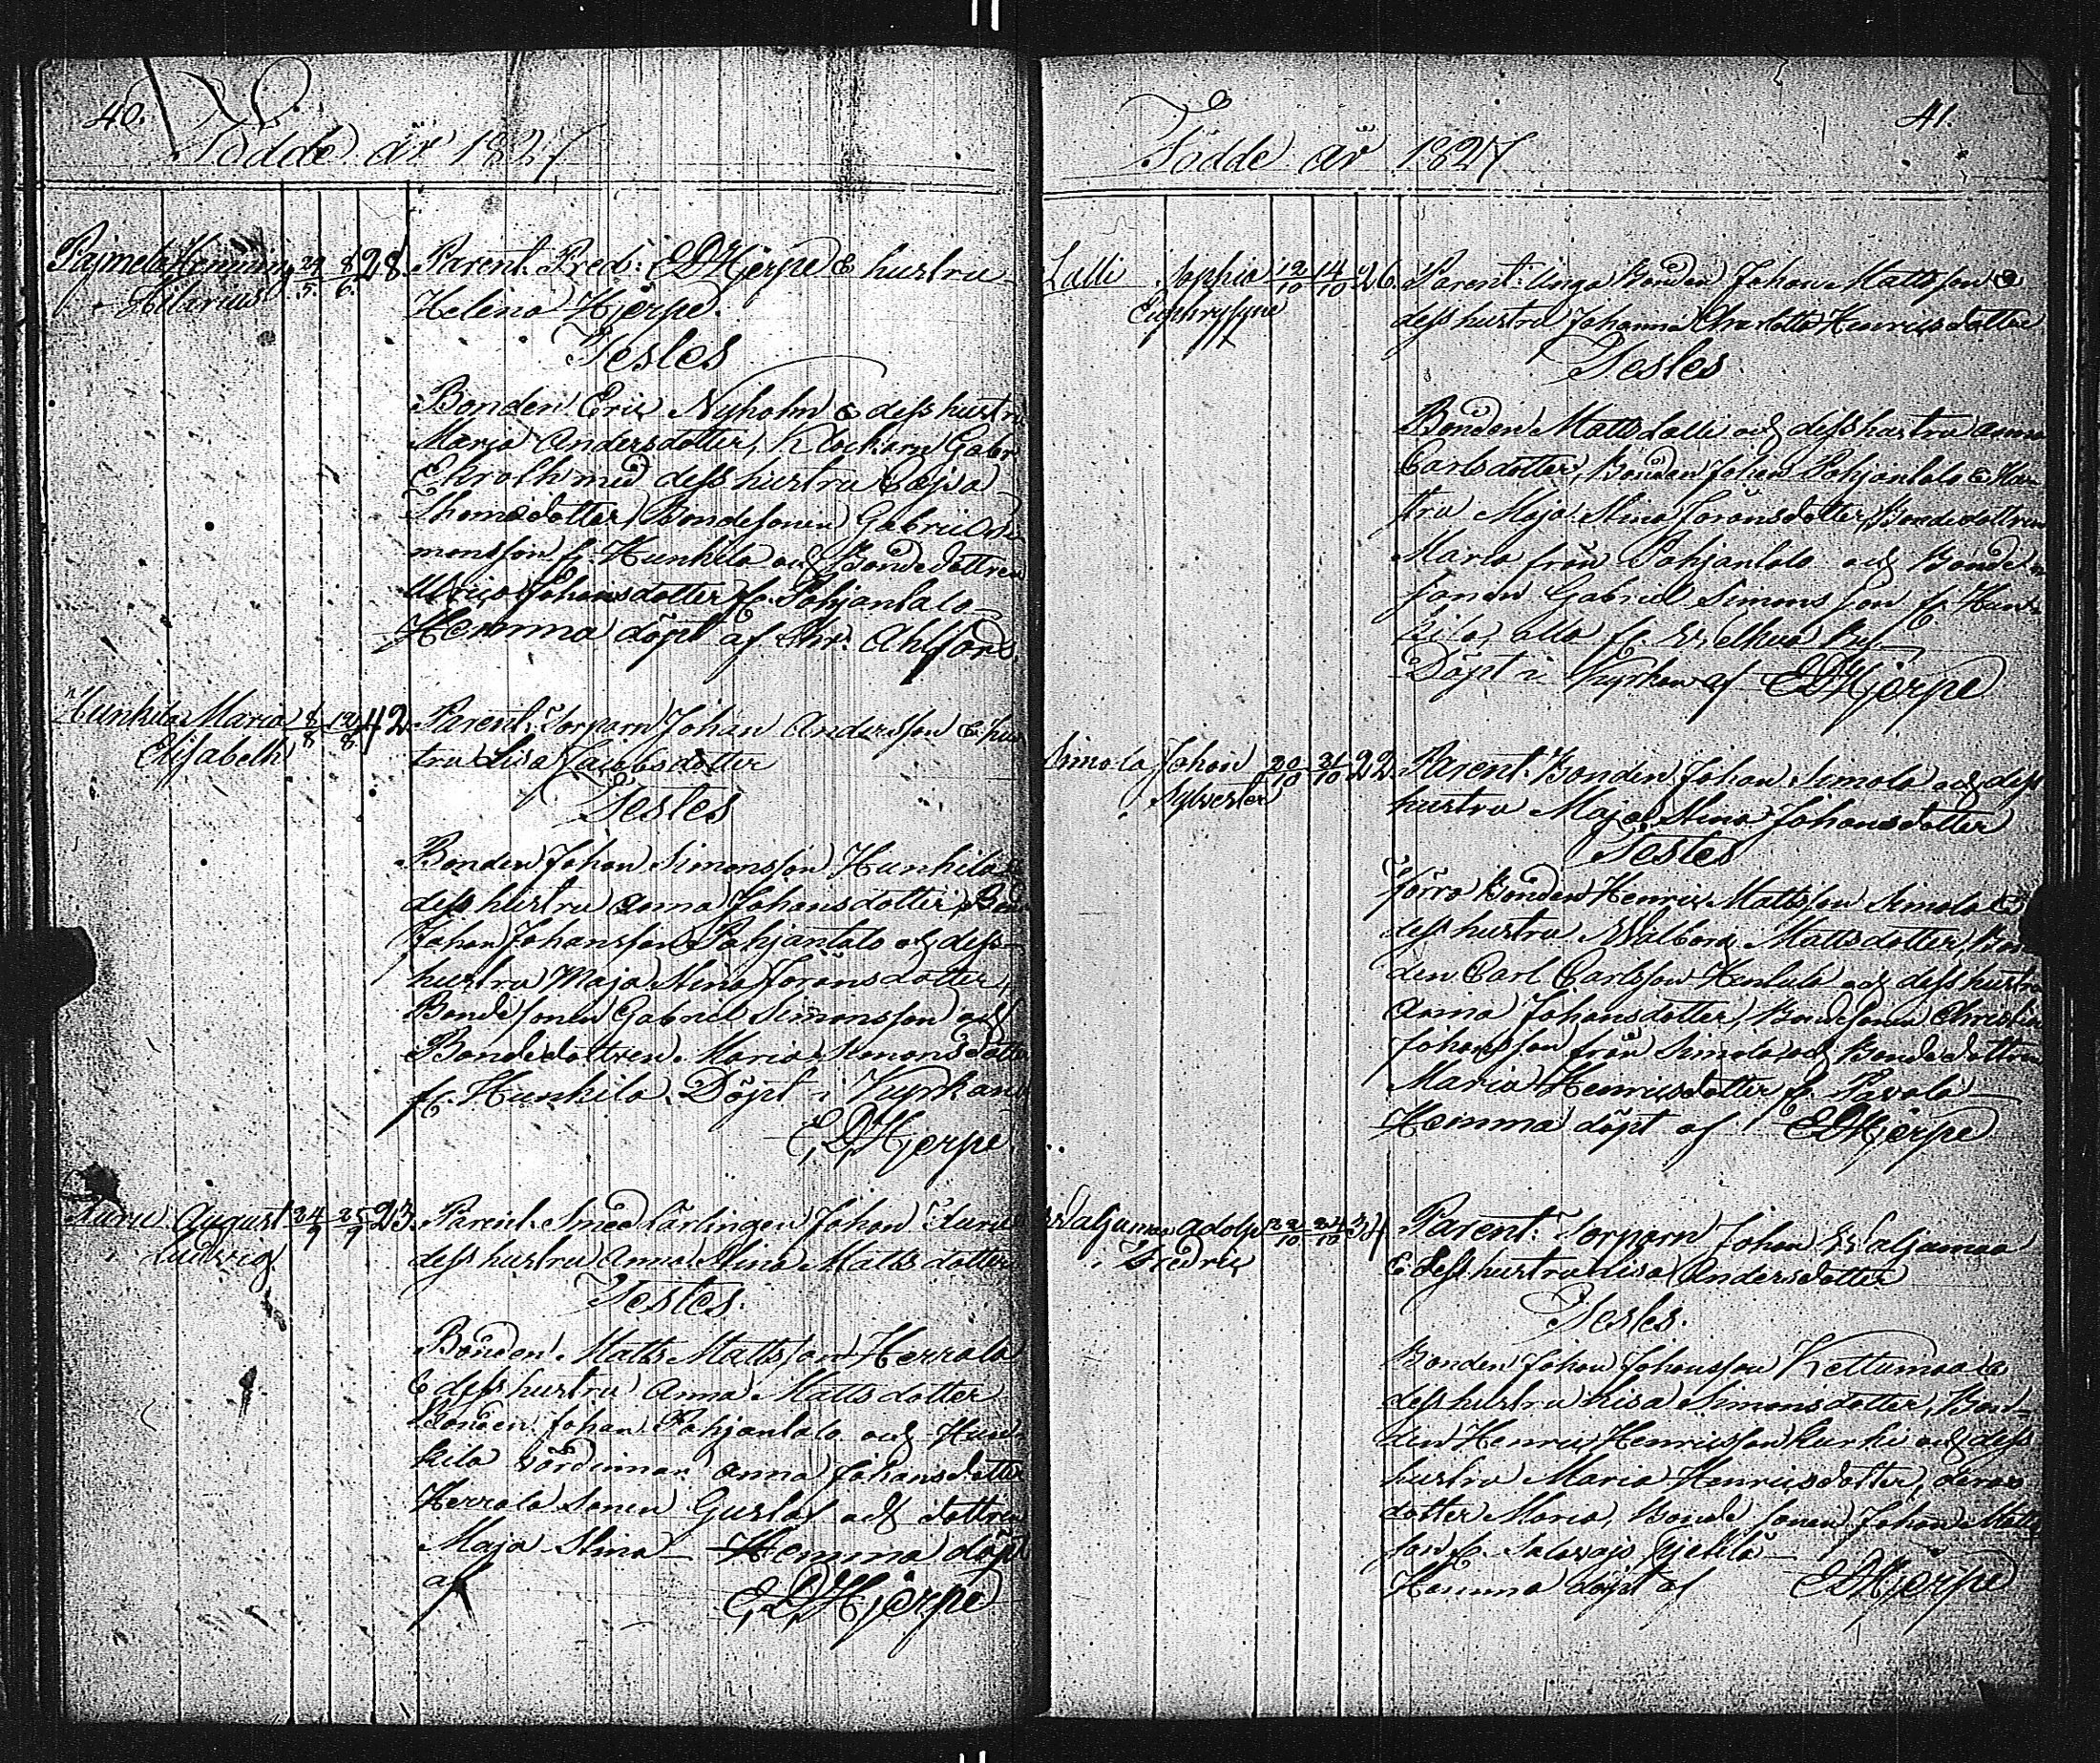 40.
Födde år 1827
Pajmela Henning 29/5 8/6 28. Parent. Pred: E D Hjerpe & hustru
Hilarius Helena Hjerpe.
Testes
Bonden Eric Nyholm & dess hustru
Maria Andersdotter, Klockarn Gabr
Ekroth med dess hustru Cajsa
Thomædotter, Bondesonen Gabriel Si
monsson fr. Hunkila och Bondedottren
Ulrica Johansdotter fr. Pohjantalo
Hemma döpt af Ahlfors.
Hunkila Maria 8/8 12/8 42. Parent. Torparn Johan Andersson & hus
Elisabeth tru Lisa Jacobsdotter
Testes
Bonden Johan Simonsson Hunkila &
dess hustru Anna Johansdotter, Bond
Johan Johansson Pohjantalo och dess
hustru Maja Stina Joransdotter,
Bondesonen Gabriel Simonsson och
Bondedottren Maria Simonsdotter
fr. Hunkila. Döpt i Kyrkan af
E. D. Hjerpe.
August 24/9 25/9 23. Parent. Smed Lärlingen Johan
Ludvig dess hustru Anna Stina Mattsdotter
Testes.
Bonden Matts Mattsson Herrala
& dess hustru Anna Mattsdotter
Bonden Johan Pohjantalo och Hun
kila värdinnan Anna Johansdotter
Herrala Sonen Gustaf och dottren
Maja Stina — Hemma döpt
af E. D. Hjerpe
41.
Födde år 1827
Lalli Sophia 12/10 14/10 26. Parent: unga Bonden Johan Mattsson &
Euphrosyne dess hustru Johanna Charlotta Henricsdotter
Testes.
Bonden Matts Lalli och dess hustru Anna
Carlsdotter, Bonden Johan Pohjantalo & Hu
stru Maja Stina Joransdotter, Bondedottren
Maria från Pohjantalo och Bonde
sonen Gabriel Simonsson fr. Hun
kila, alla fr.
Döpt i Kyrkan af E D Hjerpe
Simola Johan 20/10 21/10 22. Parent. Bonden Johan Simola och dess
Sylvester hustru Maja Stina Johansdotter
Testes
Förra Bonden Henric Mattsson Simola &
dess hustru Walborg Mattsdotter, Bon
den Carl Carlsson Hentula och dess hustru
Anna Johansdotter, Bondesonen Christian
Johansson från Simola och Bondedottren
Maria Henricsdotter fr. Pavola —
Hemma döpt af E D Hjerpe
Waljamaa Adolph 22/10 24/10 34. Parent: Torparn Johan Waljamaa
Fredric & dess hustru Lisa Andersdotter
Testes.
Bonden Johan Johansson Kettumaa &
dess hustru Lisa Simonsdotter, Bon
den Henric Henricsson Kurki och dess
hustru Maria Henricsdotter, deras
dotter Maria, Bonde sonen Johan Matts
son fr.
Hemma döpt af E D Hjerpe